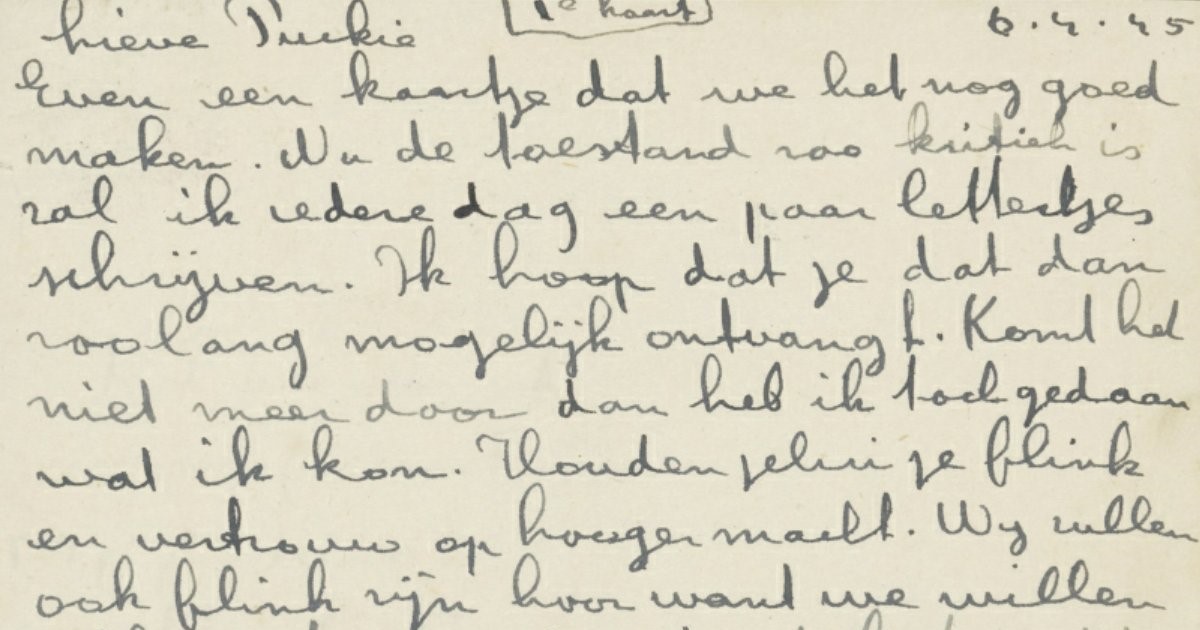 Lieve Puckie [1e kaart] 6.4.45
Even een kaartje dat we het nog goed
maken. Nu de toestand zoo kritiek is
zal ik iedere dag een paar lettertjes
schrijven. Ik hoop dat je dat dan
zoolang mogelijk ontvangt. Komt het
niet meer door dan heb ik toch gedaan
wat ik kon. Houden jelui je flink
en vertrouw op hooger macht. Wij zullen
ook flink zijn hoor want we willen